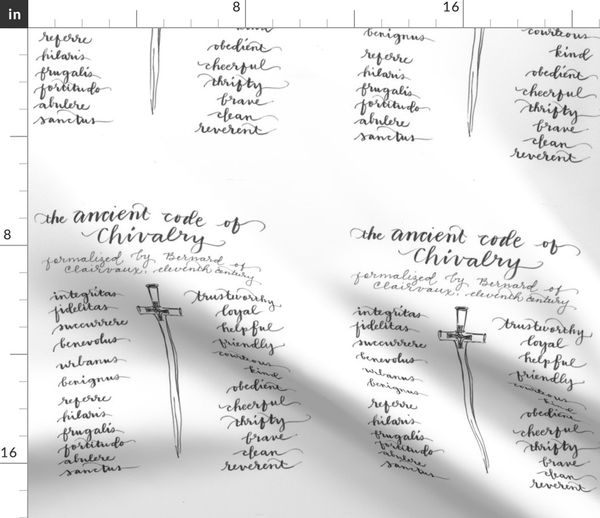 in
8
16
referre
hilaris
frugalis
fortitudo
abulere
sanctus
obedient
cheerful
thrifty
brave
clean
reverent
benignus
referre
hilaris
frugalis
fortitudo
abulere
sanctus
courteous
kind
obedient
cheerful
thrifty
brave
clean
reverent
8
the ancient code of
Chivalry
formalized by Bernard of
Clairvaux, eleventh century
integritas
fidelitas
succurrere
benevolus
urbanus
benignus
referre
hilaris
frugalis
fortitudo
abulere
sanctus
trustworthy
loyal
helpful
friendly
courteous
kind
obedient
cheerful
thrifty
brave
clean
reverent
the ancient code of
Chivalry
formalized by Bernard of
Clairvaux, eleventh century
integritas
fidelitas
succurrere
benevolus
urbanus
benignus
referre
hilaris
frugalis
fortitudo
abulere
sanctus
trustworthy
loyal
helpful
friendly
courteous
kind
obedient
cheerful
thrifty
brave
clean
reverent
16